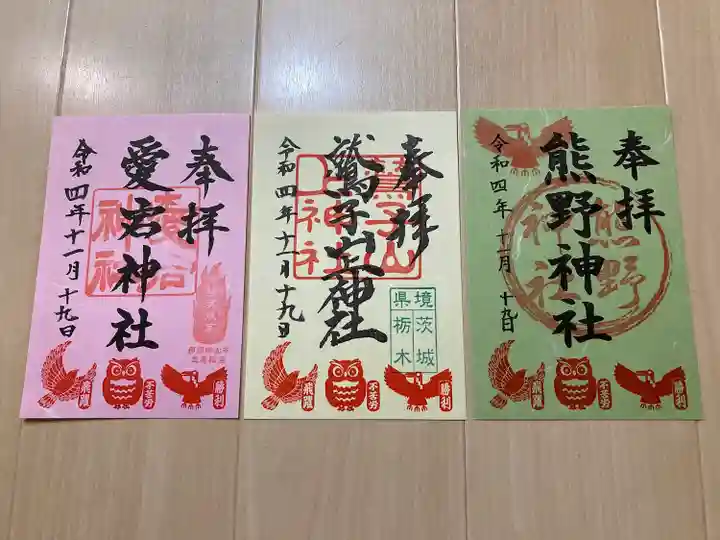 奉拝
愛宕神社
令和四年十一月十九日
愛宕
神社
飛躍
不苦労
勝利
奉拝
鷲子山上神社
令和四年十一月十九日
鷲子山
上神社
境茨城
県栃木
飛躍
不苦労
勝利
奉拝
熊野神社
令和四年十一月十九日
熊野
神社
飛躍
不苦労
勝利